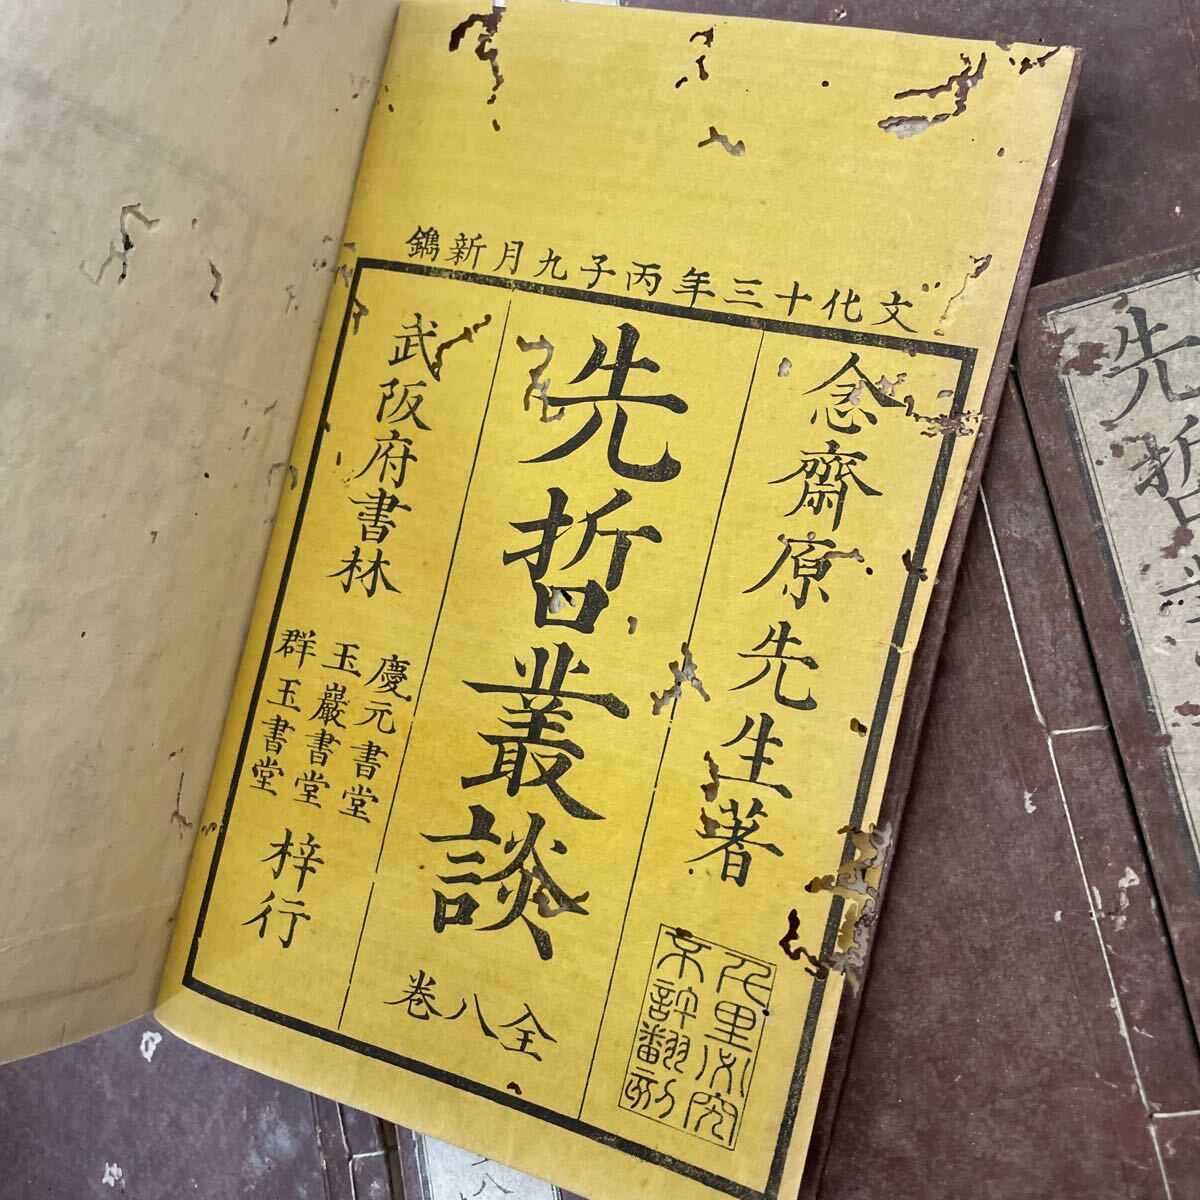 文化十三年丙子九月新鐫
念齋原先生著
千里必究
不許翻刻
先哲叢談
全八卷
武阪府書林
慶元書堂
玉巖書堂
群玉書堂
梓行
先哲